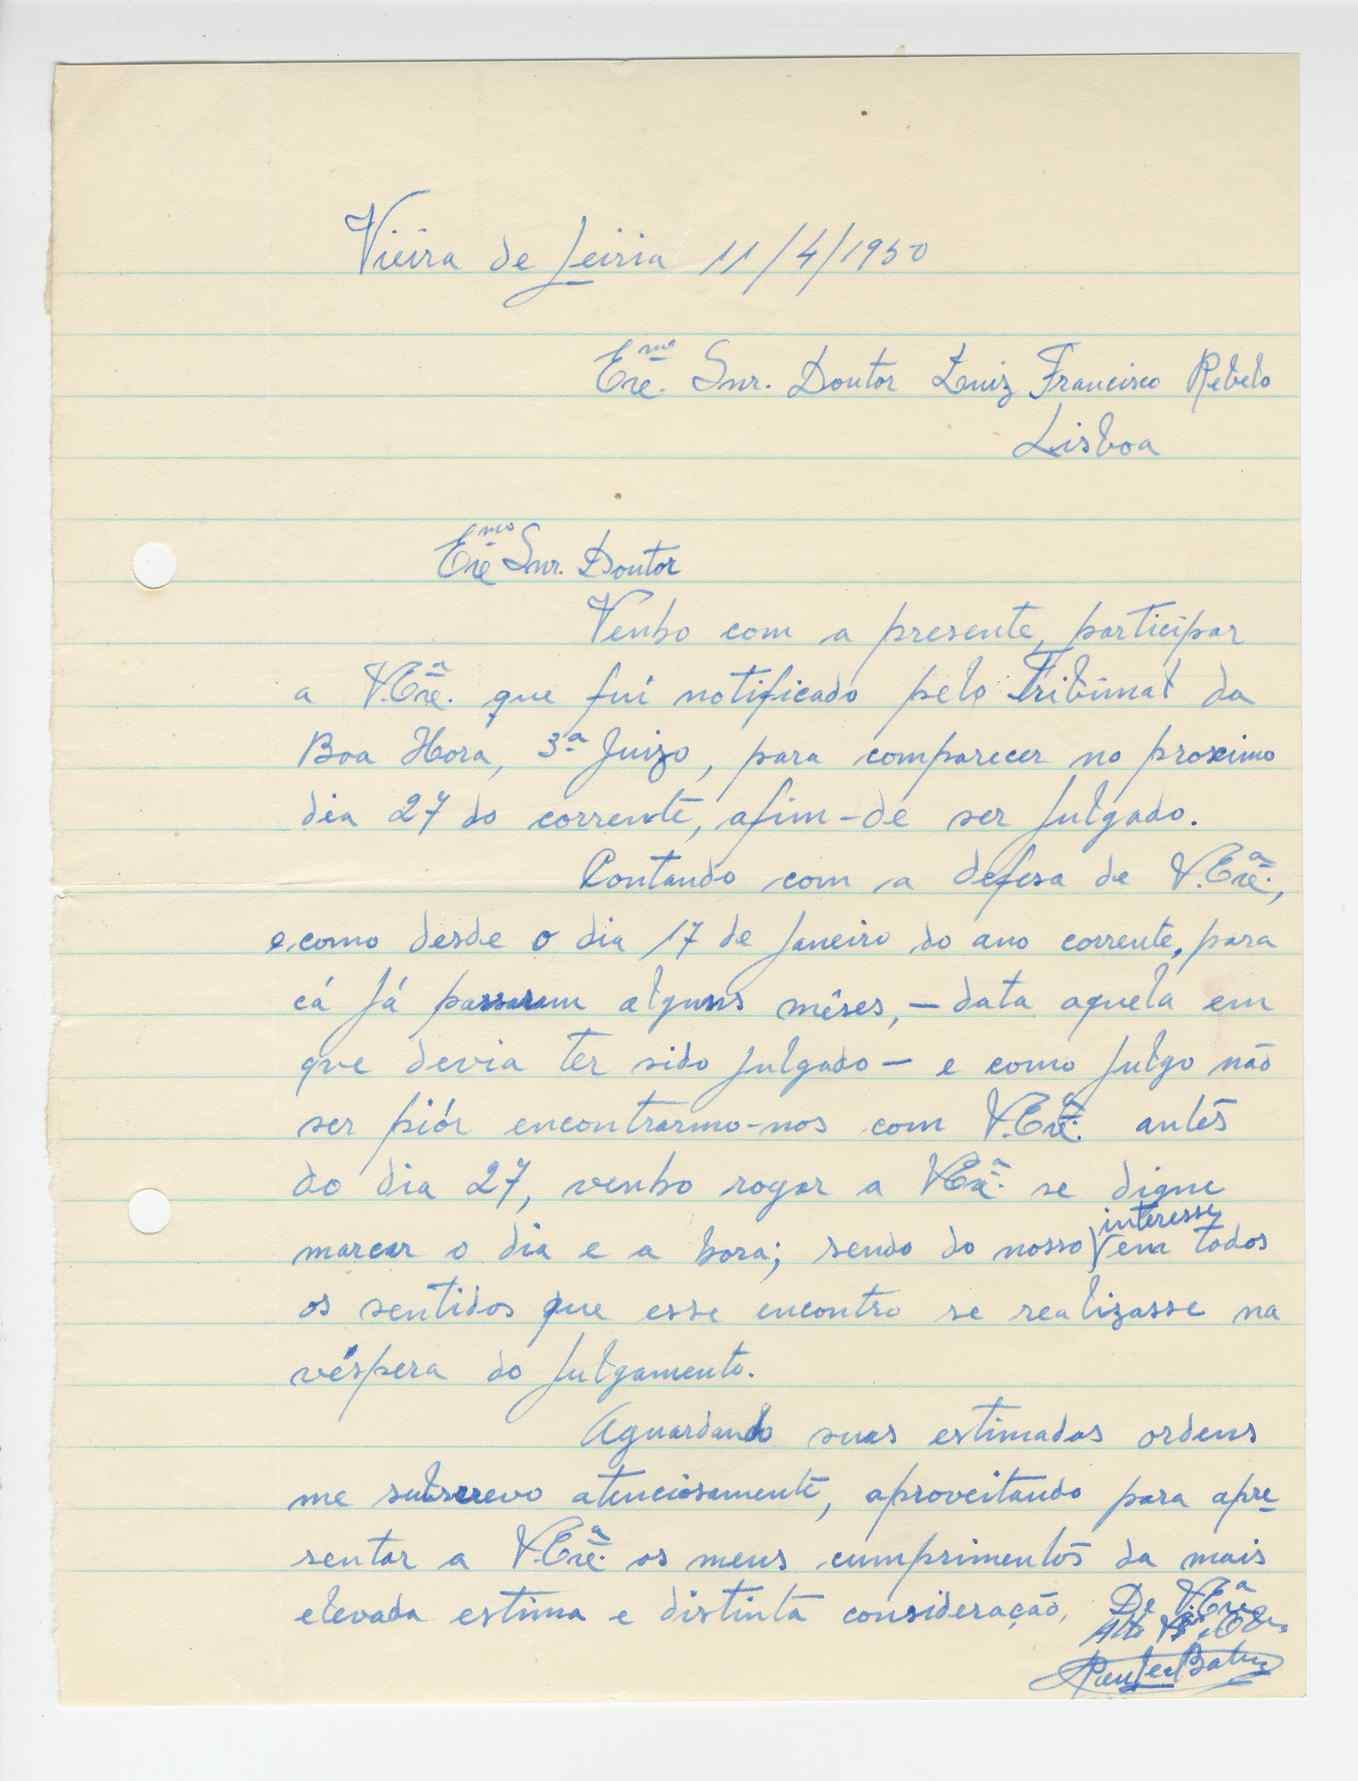 Vieira de Leiria 11/4/1950
Exc.mo Snr. Doutor Luiz Francisco Rebelo
Lisboa
Exc.mo Snr. Doutor
Venho com a presente, participar
a V. Exc.ª que fuí notificado pelo Tribunal da
Boa Hora, 3º Juizo, para comparecer no proximo
dia 27 do corrente, afim-de ser julgado.
Contando com a defesa de V. Exc.ª,
e, como desde o dia 17 de Janeiro do ano corrente, para
cá já passaram alguns mêses, — data aquela em
que devia ter sido julgado — e como julgo não
ser piór encontrarmo-nos com V. Exc.ª antes
do dia 27, venho rogar a V. Exc.ª se digne
marcar o dia e a hora; sendo do nosso interesse em todos
os sentidos que esse encontro se realizasse na
véspera do julgamento.
Aguardando suas estimadas ordens
me subscrevo atenciosamente, aproveitando para apre-
sentar a V. Exc.ª os meus cumprimentos da mais
elevada estima e distinta consideração, De V. Exc.ª